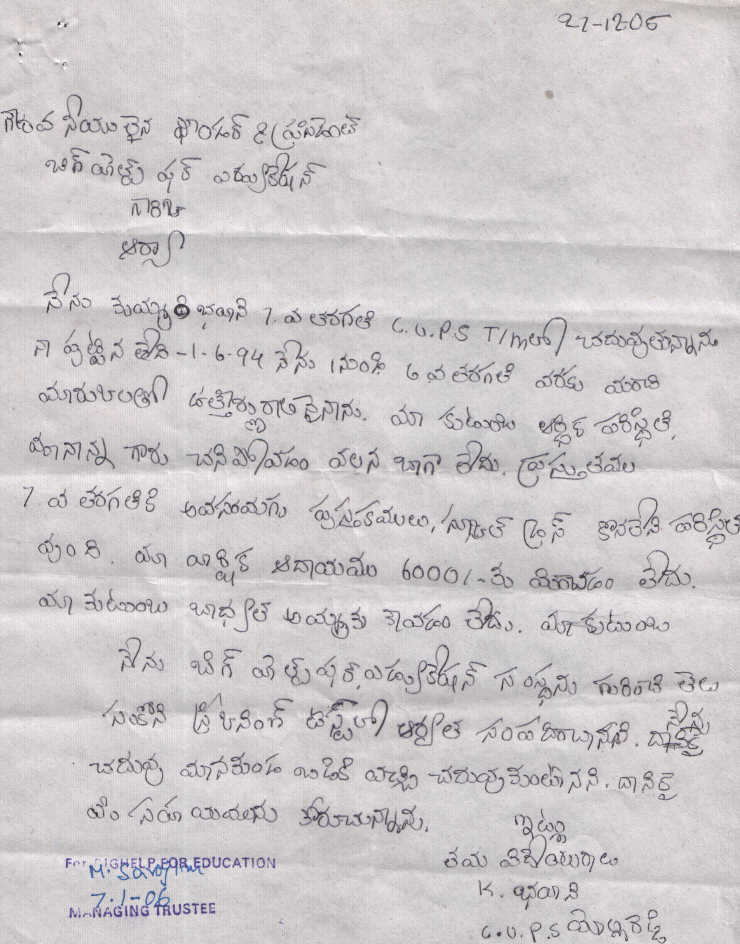 27-12-05
గౌరవ నీయులైన ఫౌండర్ & ప్రెసిడెంట్
బిగ్ హెల్ప్ ఫర్ ఎడ్యుకేషన్
గారికి
ఆర్యా
నేను 7. వ తరగతి C.U.P.S T/mలో చదువుతున్నాను
నా పుట్టిన తేది -1-6-94 నేను 1నుండి 6 వ తరగతి వరకు మంచి
మార్కులతో ఉత్తీర్ణురాల నైనాను. మా కుటుంబ ఆర్థిక పరిస్థితి,
మానాన్న గారు చనిపోవడం వలన బాగా లేదు. ప్రస్తుతము
7. వ తరగతికి అవసరమగు పుస్తకములు, స్కూల్ డ్రస్ కొనలేని పరిస్థితి
వుంది. మా వార్షిక ఆదాయము 6000/-కు మించడం లేదు.
మా కుటుంబ బాధ్యత అమ్మకు కావడం లేదు. మా కుటుంబ
నేను బిగ్ హెల్ప్ ఫర్ ఎడ్యుకేషన్ సంస్థను గురించి తెలు
సుకొని స్క్రీనింగ్ టెస్ట్‌లో అర్హత సంపాదించానని. నేను
చదువు మానకుండా బడికి వచ్చి చదువుకుంటానని. దానికై
మీ సహాయమును కోరుచున్నాను.
ఇట్లు
తమ విధేయురాలు
K. భవాని
C.U.P.S
For BIGHELP FOR EDUCATION
7-1-06
MANAGING TRUSTEE